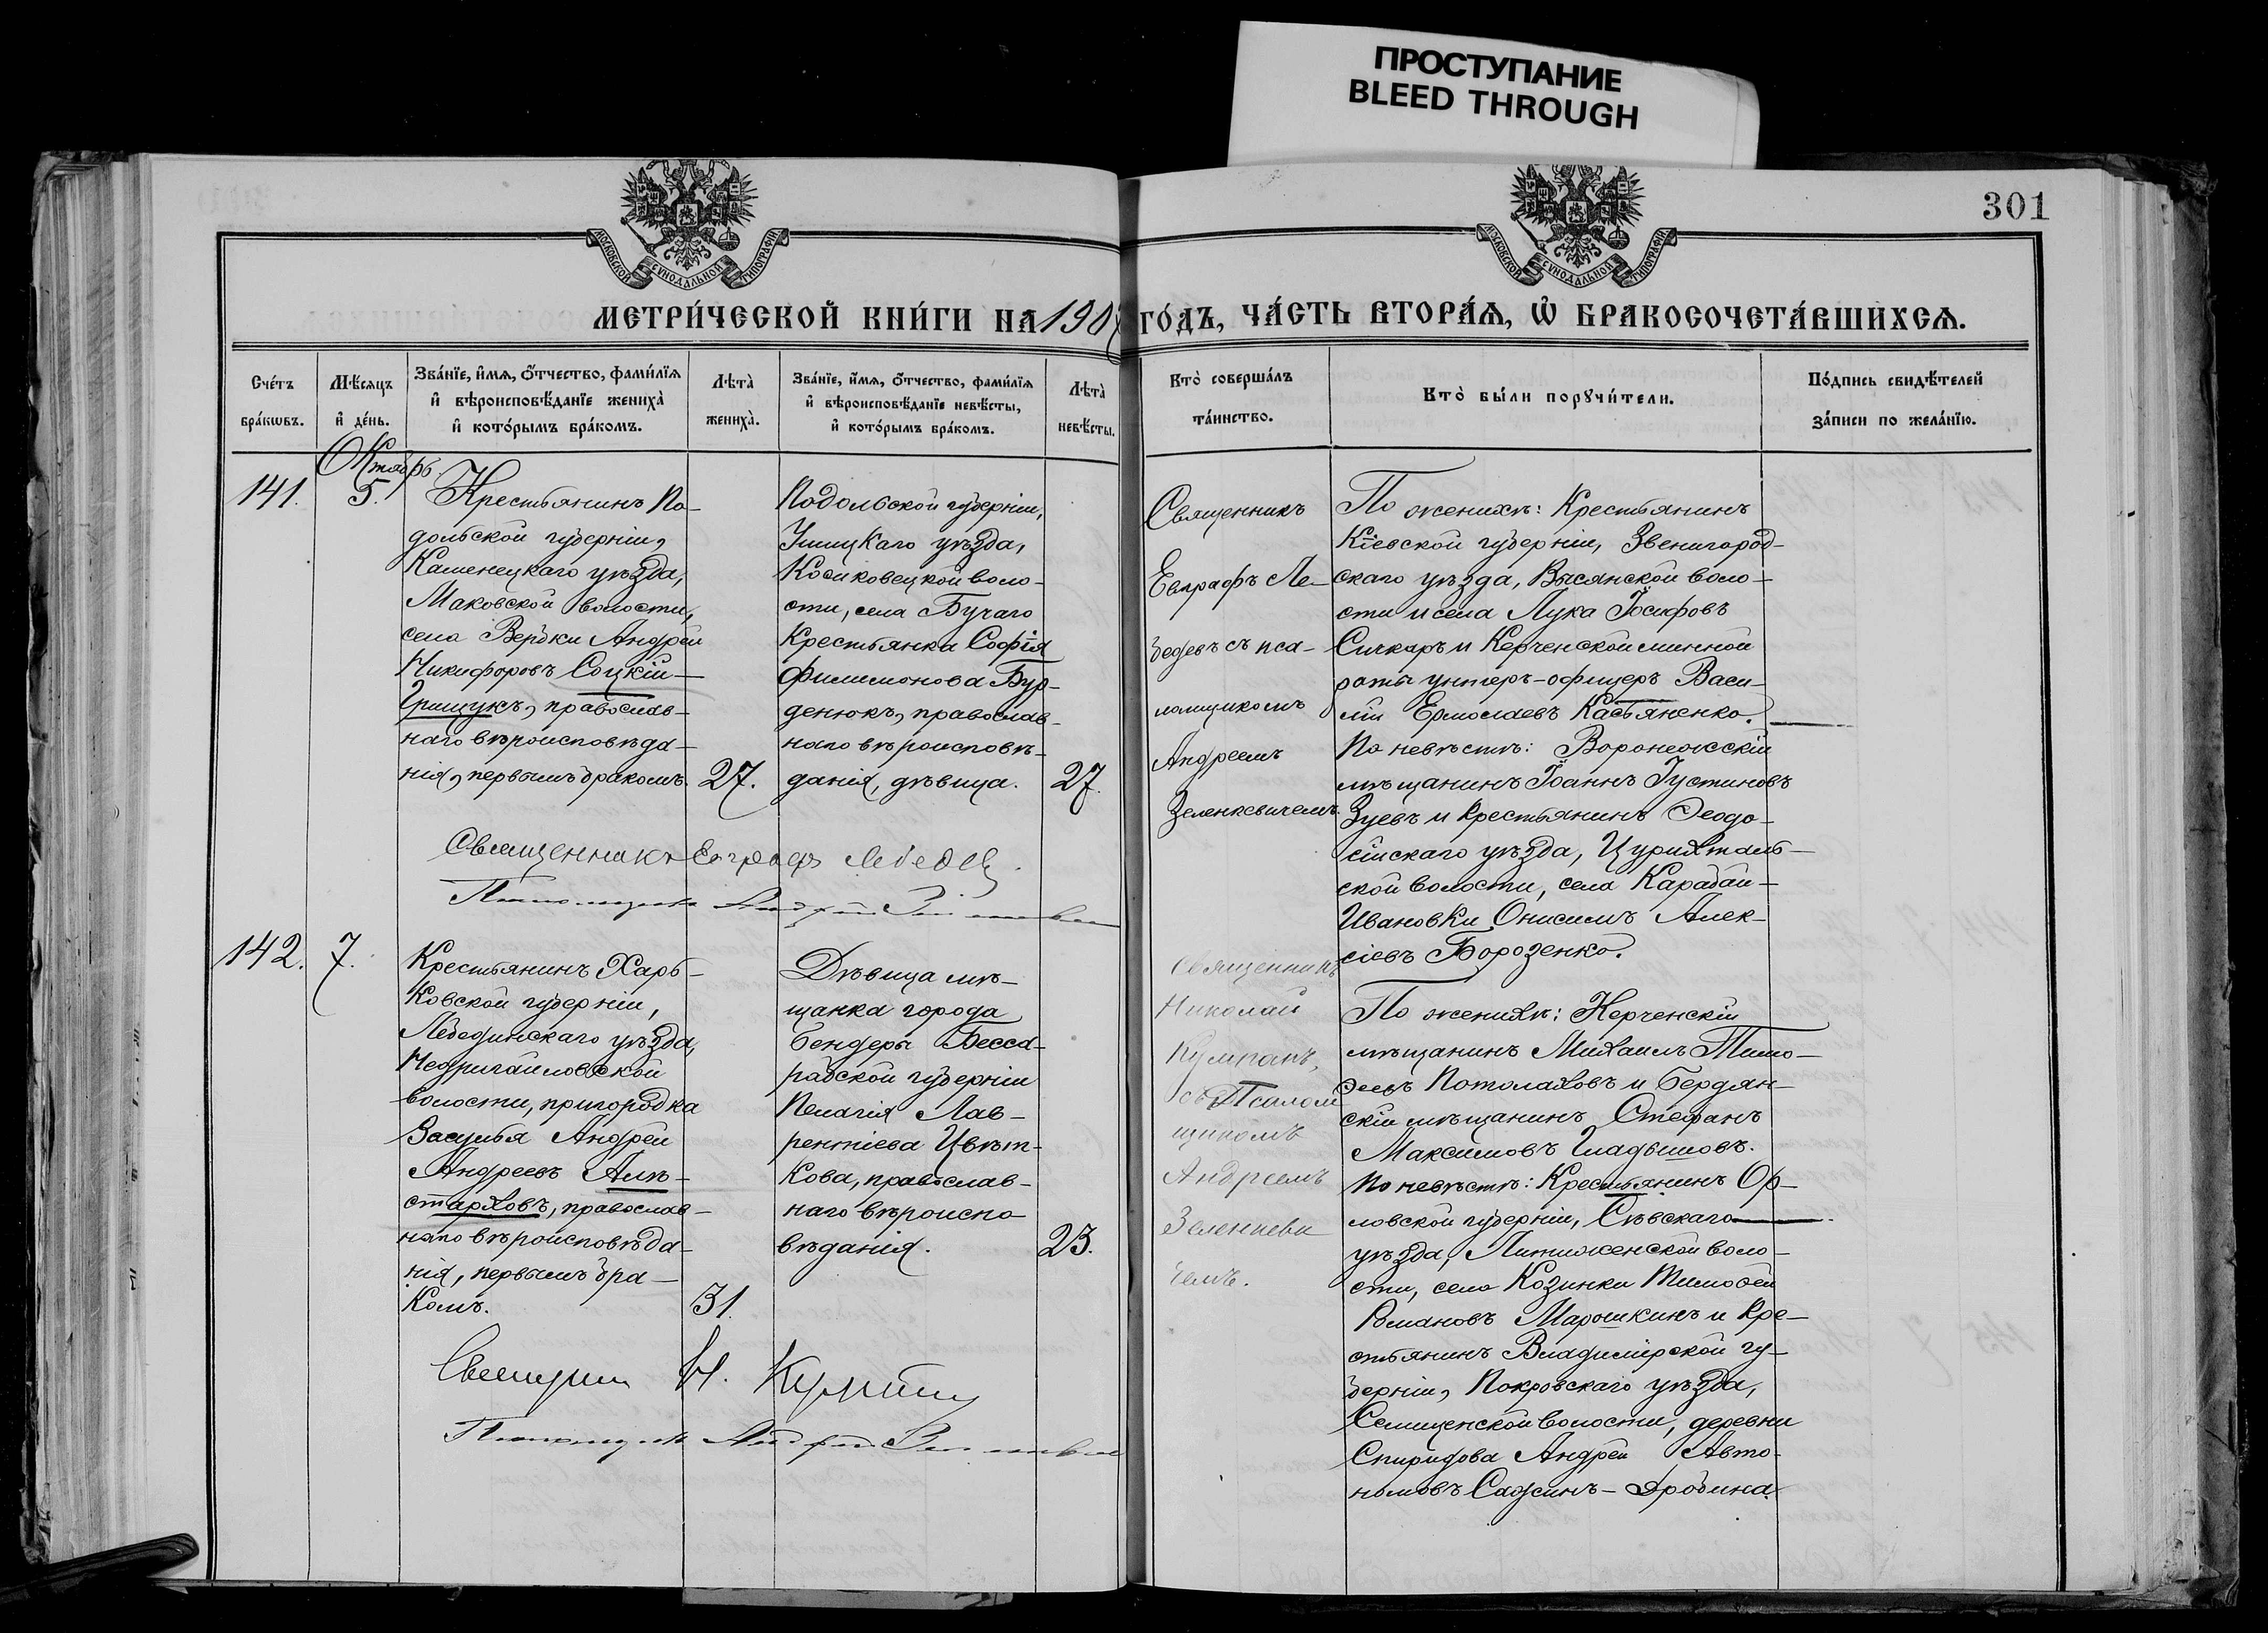 ПРОСТУПАНИЕ
BLEED THROUGH
301
МОСКОВСКОЙ СѴНОДАЛЬНОЙ ТИПОГРАФІИ
МОСКОВСКОЙ СѴНОДАЛЬНОЙ ТИПОГРАФІИ
МЕТРИ́ЧЕСКОЙ КНИ́ГИ НА 190
ГО́ДЪ, ЧА́СТЬ ВТОРА́Ѧ, Ѽ БРАКОСОЧЕТА́ВШИХСѦ.
Сче́тъ
бра́кѡвъ.
Мѣ́сяцъ
и҆ де́нь.
Зва́нїе, и҆́мѧ, ѻ҆́тчество, фами́лїѧ
и҆ вѣроисповѣ́данїе жениха̀
и҆ кото́рымъ бра́комъ.
Лѣта̀
жениха̀.
Зва́нїе, и҆́мѧ, ѻ҆́тчество, фами́лїѧ
и҆ вѣроисповѣ́данїе невѣ́сты,
и҆ кото́рымъ бра́комъ.
Лѣта̀
невѣ́сты.
Кто̀ соверша́лъ
та́инство.
Кто̀ бы́ли порꙋчи́тели.
По́дпись свидѣ́телей
за́писи по жела́нїю.
Октябрь
141.
5.
Крестьянинъ По-
дольской губерніи,
Каменецкаго уѣзда,
Маковской волости,
села Вербки Андрей
Никифоровъ Соцкій-
Грищукъ, православ-
наго вѣроисповѣда-
нія, первымъ бракомъ.
27.
Подольской губерніи,
Ушицкаго уѣзда,
Косиковецкой воло-
сти, села Бучаго
Крестьянка Софія
Филимонова Бур-
денюкъ, православ-
наго вѣроисповѣ-
данія, дѣвица.
27.
Священникъ Евграфъ Лебедев
Псаломщикъ Андрей
Священникъ
Евграфъ Ле-
бедевъ съ пса-
ломщикомъ
Андреемъ
Зеленкевичемъ.
По женихѣ: Крестьянинъ
Кіевской губерніи, Звенигород-
скаго уѣзда, Высянской воло-
сти и села Лука Іосифовъ
Сичкарь и Керченской минной
роты унтеръ-офицеръ Васи-
лій Ермолаевъ Касьяненко.
По невѣстѣ: Воронежскій
мѣщанинъ Іоаннъ Іустиновъ
Зуевъ и крестьянинъ Ѳеодо-
сійскаго уѣзда, Цурихталь-
ской волости, села Карабай-
Ивановки Онисимъ Алек-
сіевъ Борозенко.
142.
7.
Крестьянинъ Харь-
ковской губерніи,
Лебединскаго уѣзда,
Недригайловской
волости, пригородка
Засулья Андрей
Андреевъ Али-
старховъ, православ-
наго вѣроисповѣда-
нія, первымъ бра-
комъ.
31.
Дѣвица мѣ-
щанка города
Бендеръ Бесса-
рабской губерніи
Пелагія Лав-
рентіева Цвѣт-
кова, православ-
наго вѣроиспо
вѣданія.
23.
Н.
Псаломщикъ Андрей
Священникъ
Николай
Кумпанъ,
съ Псалом
щикомъ
Андреемъ
Зеленкеви
чемъ.
По женихѣ: Керченскій
мѣщанинъ Михаилъ Тимо-
ѳеевъ Потолаховъ и бердян-
скій мѣщанинъ Стефанъ
Максимовъ Гладышовъ.
По невѣстѣ: Крестьянинъ Ор-
ловской губерніи, Сѣвскаго
уѣзда, Литиженской воло-
сти, села Козинки Тимоѳей
Романовъ Марошкинъ и кре-
стьянинъ Владимірской гу-
берніи, Покровскаго уѣзда,
Селищенской волости, деревни
Спиридова Андрей Авто-
номовъ